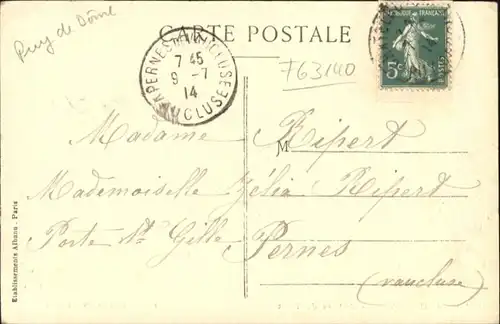 Puy de Dôme
CARTE POSTALE
RÉPUBLIQUE FRANÇAISE
5c
POSTES
PERNES VAUCLUSE
7 45
9 - 7
14
F63140
Madame Ripert
M
Mademoiselle Zélia Ripert
Porte St Gille
Pernes
(Vaucluse)
Etablissements Albans - Paris